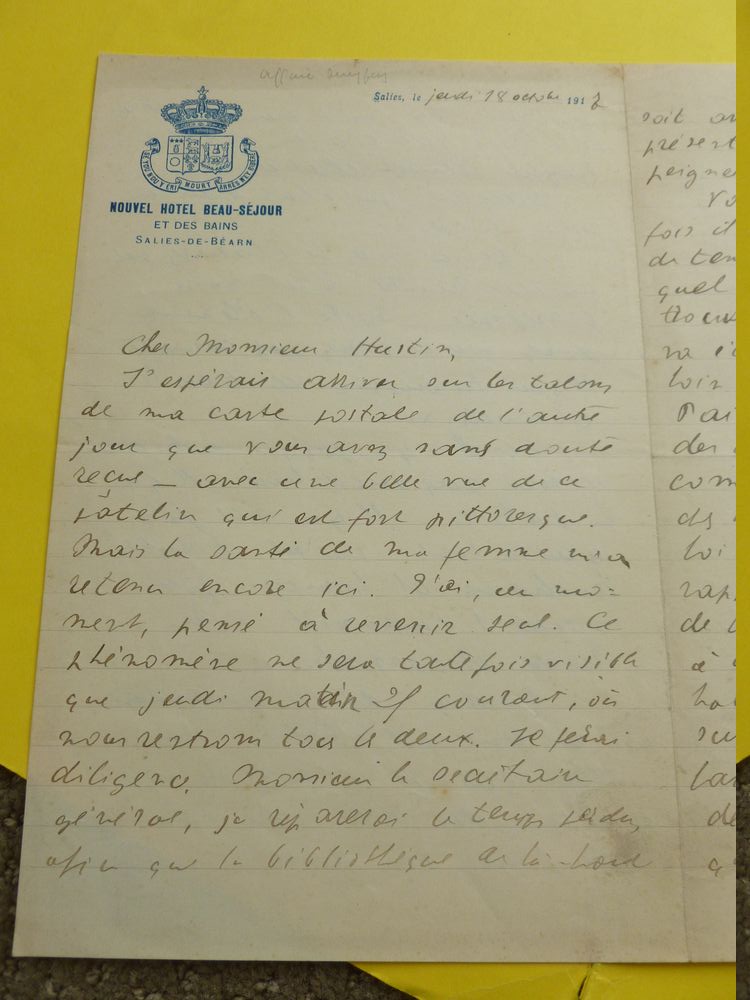 affaire Dreyfus
Salies, le jeudi 18 octobre 1917
MOURT
NOUVEL HOTEL BEAU-SÉJOUR
ET DES BAINS
SALIES-DE-BÉARN
Cher Monsieur Hustin,
J'espérais arriver sur les talons
de ma carte postale de l'autre
jour que vous avez sans doute
reçue — avec une belle vue de ce
patelin qui est fort pittoresque.
Mais la santé de ma femme m'a
retenu encore ici. J'ai, un mo-
ment, pensé à revenir seul. Ce
phénomène ne sera toutefois visible
que jeudi matin 25 courant, où
nous rentrons tous les deux. Je ferai
diligence, Monsieur le secrétaire
général, je réparerai le temps perdu,
afin que la bibliothèque de la
soit
présent
peigne
fois il
de ten
quel
trouv
va i
loin
J'ai
des
com
des
loi
rap
de
à
ha
su
la
de
q